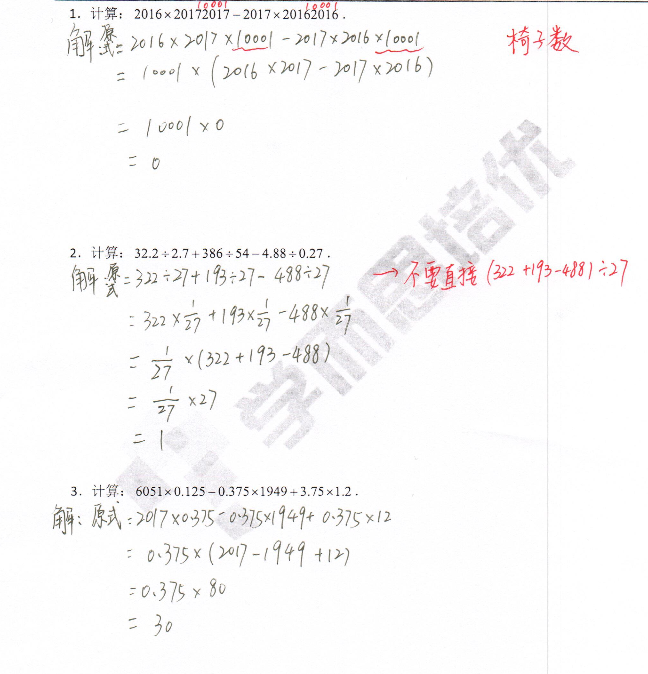 10001 10001
1. 计算：2016×20172017－2017×20162016．
解 原式=2016×2017×10001－2017×2016×10001 椅子数
= 10001×(2016×2017－2017×2016)
= 10001×0
= 0
2. 计算：32.2÷2.7+386÷54－4.88÷0.27．
解 原式=322÷27+193÷27－488÷27 → 不要直接(322+193-488)÷27
=322×1/27+193×1/27－488×1/27
= 1/27×(322+193－488)
= 1/27×27
= 1
3. 计算：6051×0.125－0.375×1949+3.75×1.2．
解：原式=2017×0.375－0.375×1949+0.375×12
= 0.375×(2017－1949+12)
=0.375×80
= 30
学而思培优